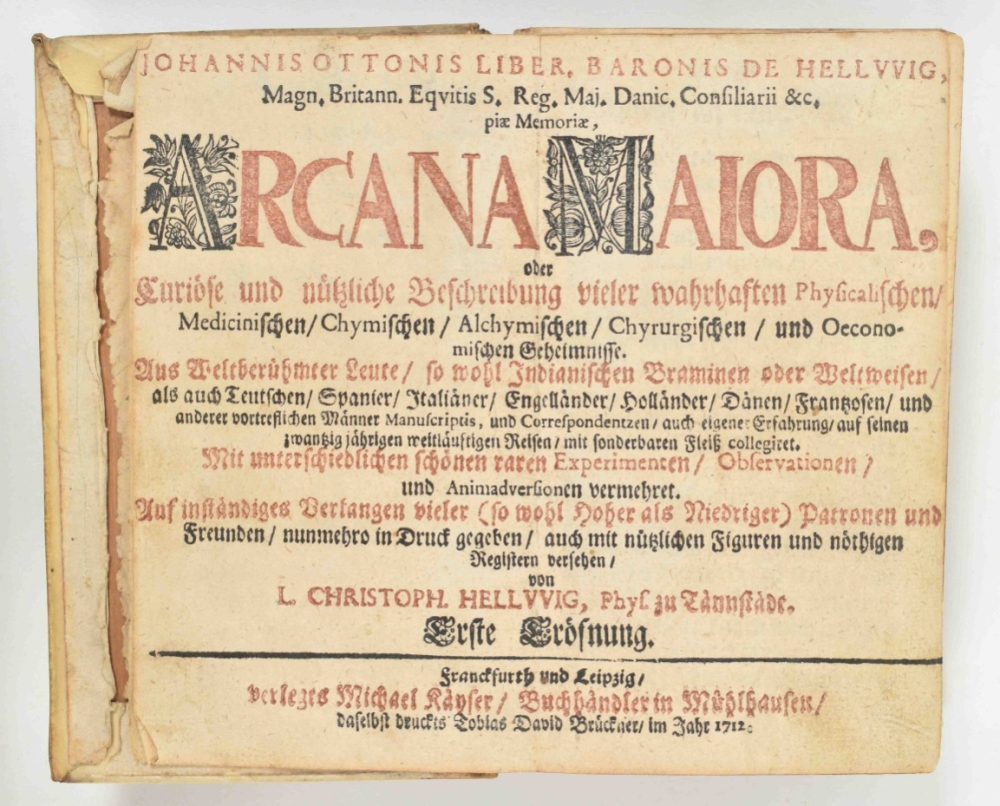 JOHANNIS OTTONIS LIBER. BARONIS DE HELLVVIG,
Magn. Britann. Eqvitis S. Reg. Maj. Danic. Consiliarii &c.
piæ Memoriæ,
ARCANA MAIORA,
oder
Curiöse und nützliche Beschreibung vieler wahrhaften Physicalischen/
Medicinischen/ Chymischen/ Alchymischen/ Chyrurgischen/ und Oecono-
mischen Geheimnisse.
Aus Weltberühmter Leute/ so wohl Indianischen Braminen oder Weltweisen/
als auch Teutschen/ Spanier/ Italiäner/ Engelländer/ Holländer/ Dänen/ Frantzosen/ und
anderer vortreflichen Männer Manuscriptis, und Correspondentzen/ auch eigener Erfahrung/ auf seinen
zwantzig jährigen weitläuftigen Reisen/ mit sonderbaren Fleiß collegiret.
Mit unterschiedlichen schönen raren Experimenten/ Observationen/
und Animadversionen vermehret.
Auf inständiges Verlangen vieler (so wohl Hoher als Niedriger) Patronen und
Freunden/ nunmehro in Druck gegeben/ auch mit nützlichen Figuren und nöthigen
Registern versehen/
von
L. CHRISTOPH. HELLVVIG, Phys. zu Tännstädt.
Erste Eröfnung.
Franckfurth und Leipzig/
verlegts Michael Käyser/ Buchhändler in Mühlhausen/
daselbst druckts Tobias David Brückner/ im Jahr 1712.